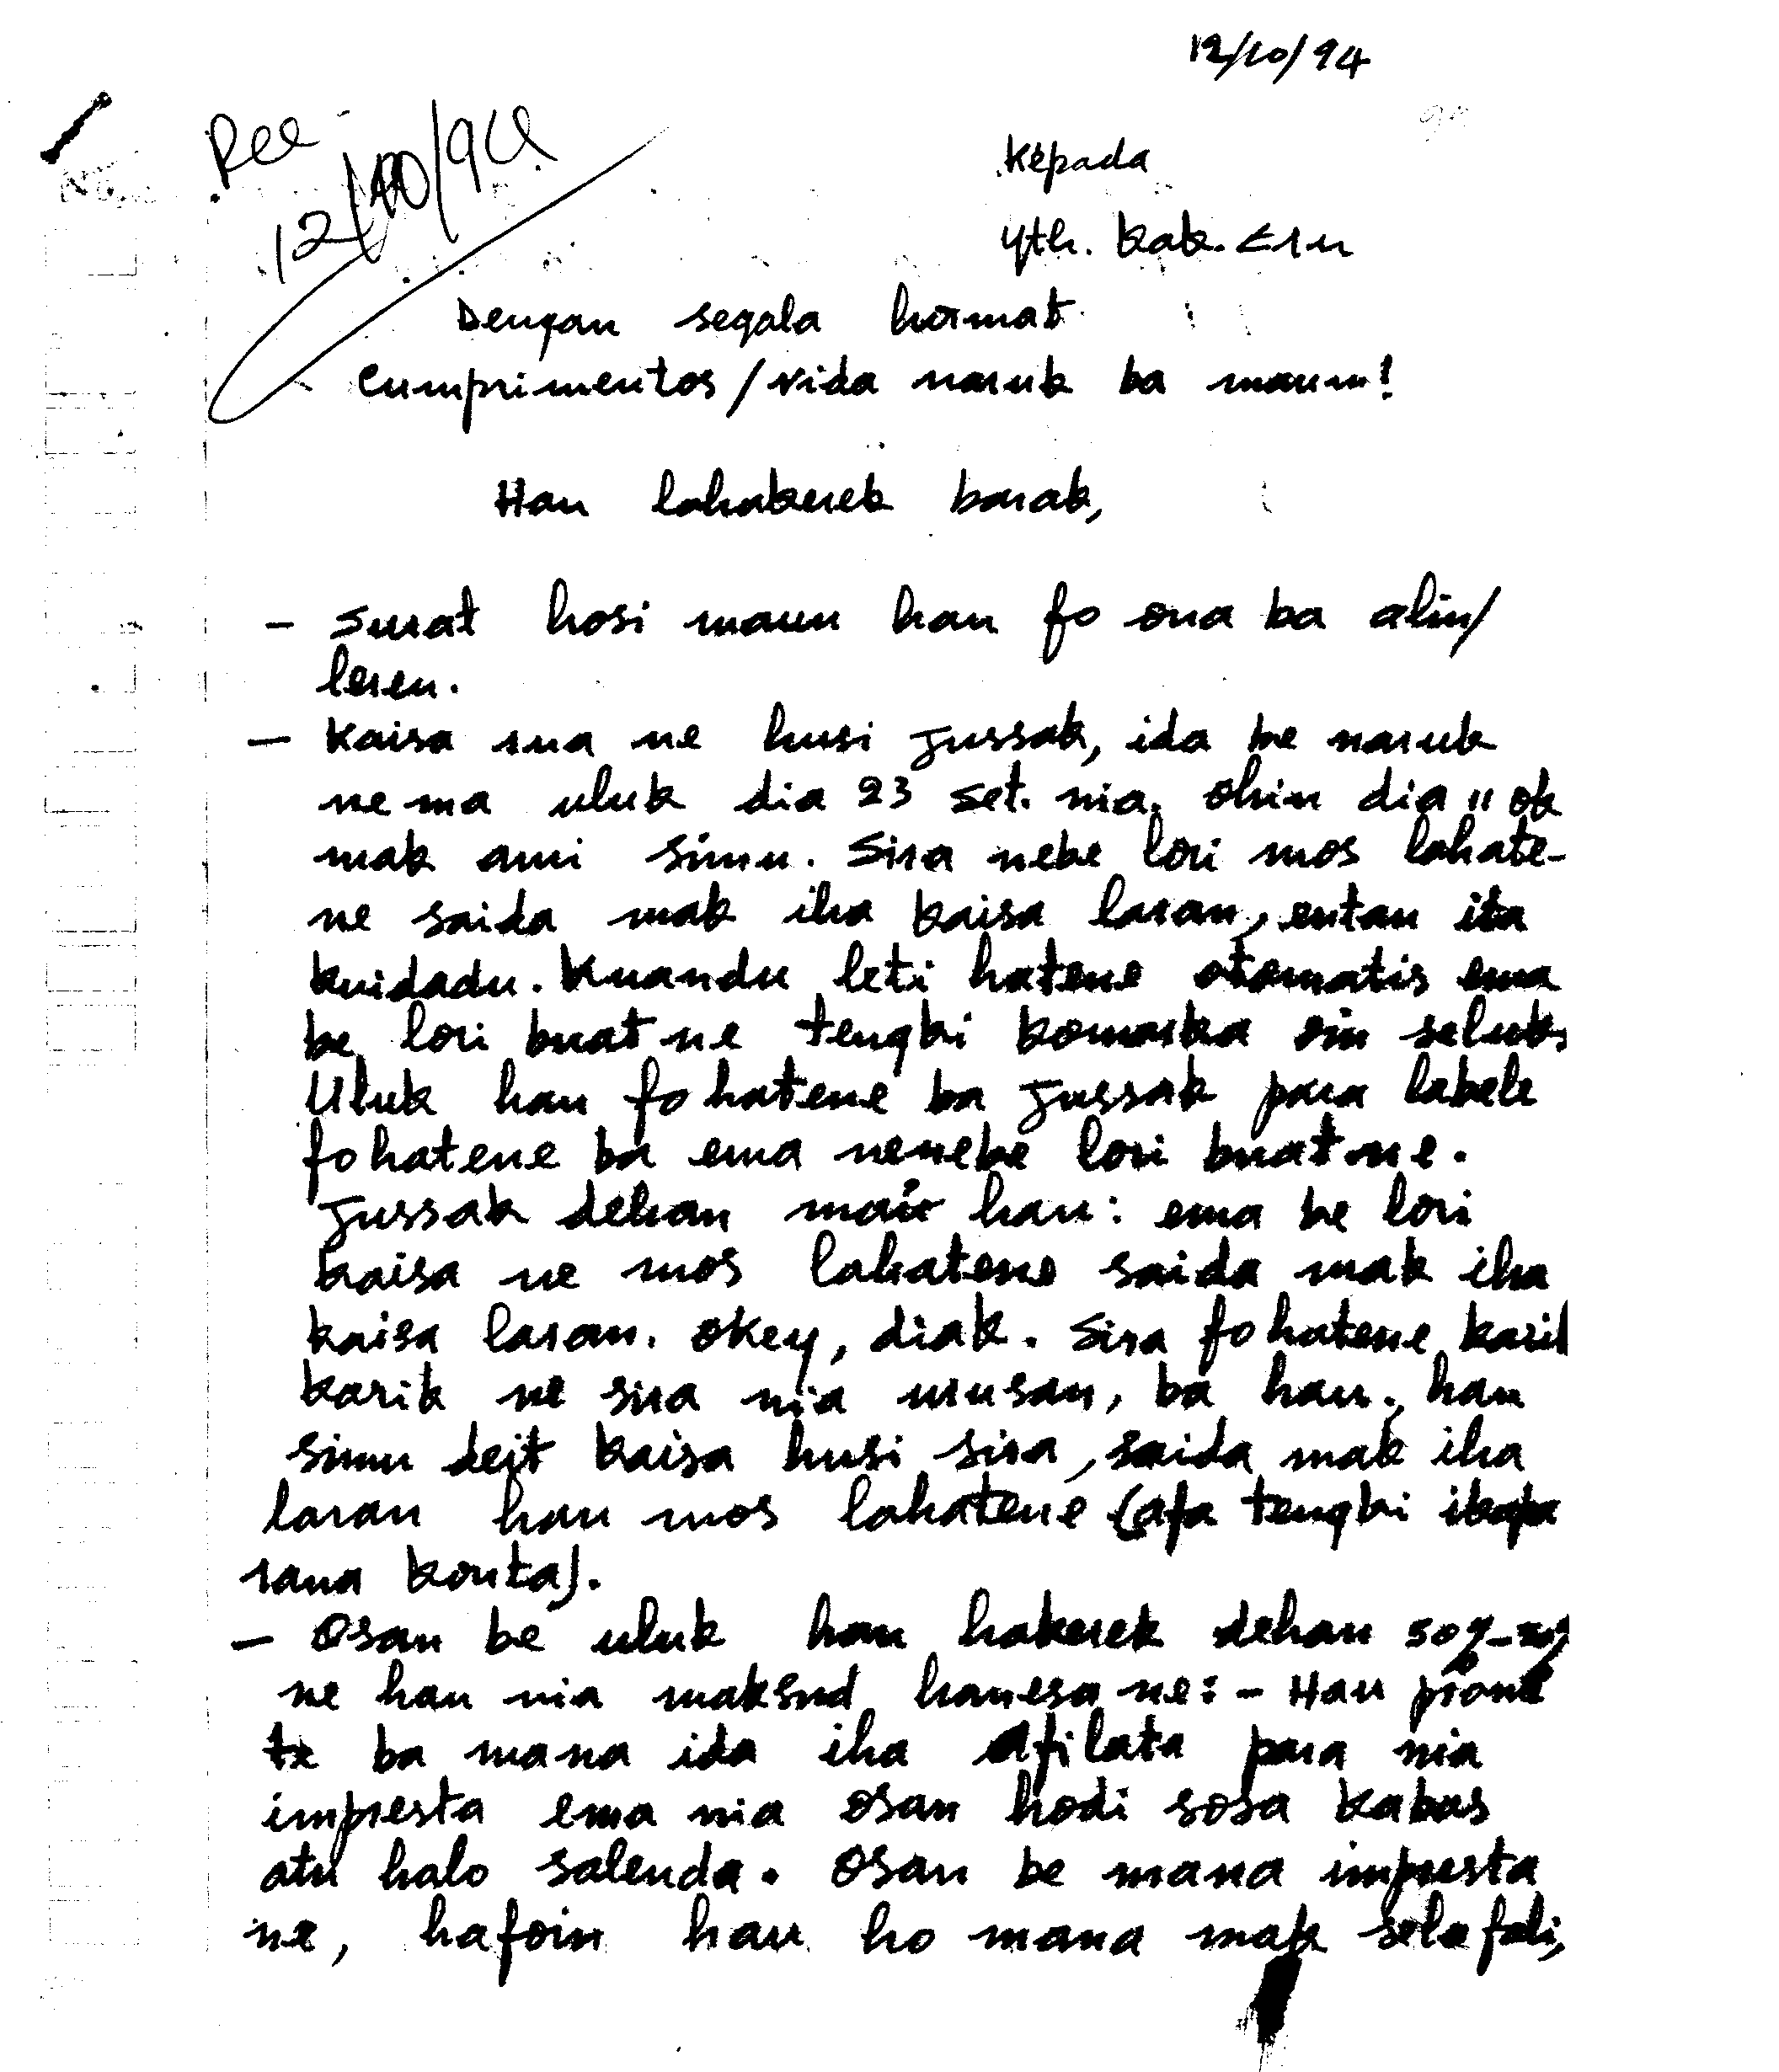 12/10/94
Rec
12/10/94
Kepada
Yth. kak. Eru
Dengan segala hormat
Cumprimentos/vida naruk ba maun!
Hau lahakerek barak,
- Surat hosi maun hau fo ona ba alin/
leren.
- Kaisa rua ne husi Jussak, ida be naruk
ne ma uluk dia 23 set. nia. Ohin dia 11 ok
mak ami simu. Sira nebe lori mos lahate-
ne saida mak iha kaisa laran, entau ita
kuidadu. Kuandu leti hatene otomatis ema
be lori buat ne tengki komarka oin seluk.
Uluk hau fo hatene ba Jussak para labele
fo hatene ba ema nenebe lori buat ne.
Jussak dehan mai hau: ema be lori
kaisa ne mos lahatene saida mak iha
kaisa laran. Okey, diak. Sira fo hatene karik
karik ne sira nia urusan, ba hau, hau
simu deit kaisa husi sira, saida mak iha
laran hau mos lahatene (afa tengki
rana konta).
- Osan be uluk hau hakerek dehan 50%-50%
ne hau nia maksud hanesa ne: - Hau prome
te ba mana ida iha Afilata para nia
impresta ema nia osan hodi sosa kabas
atu halo salenda. Osan be mana impresta
ne, hafoin hau ho mana mak selo fali,